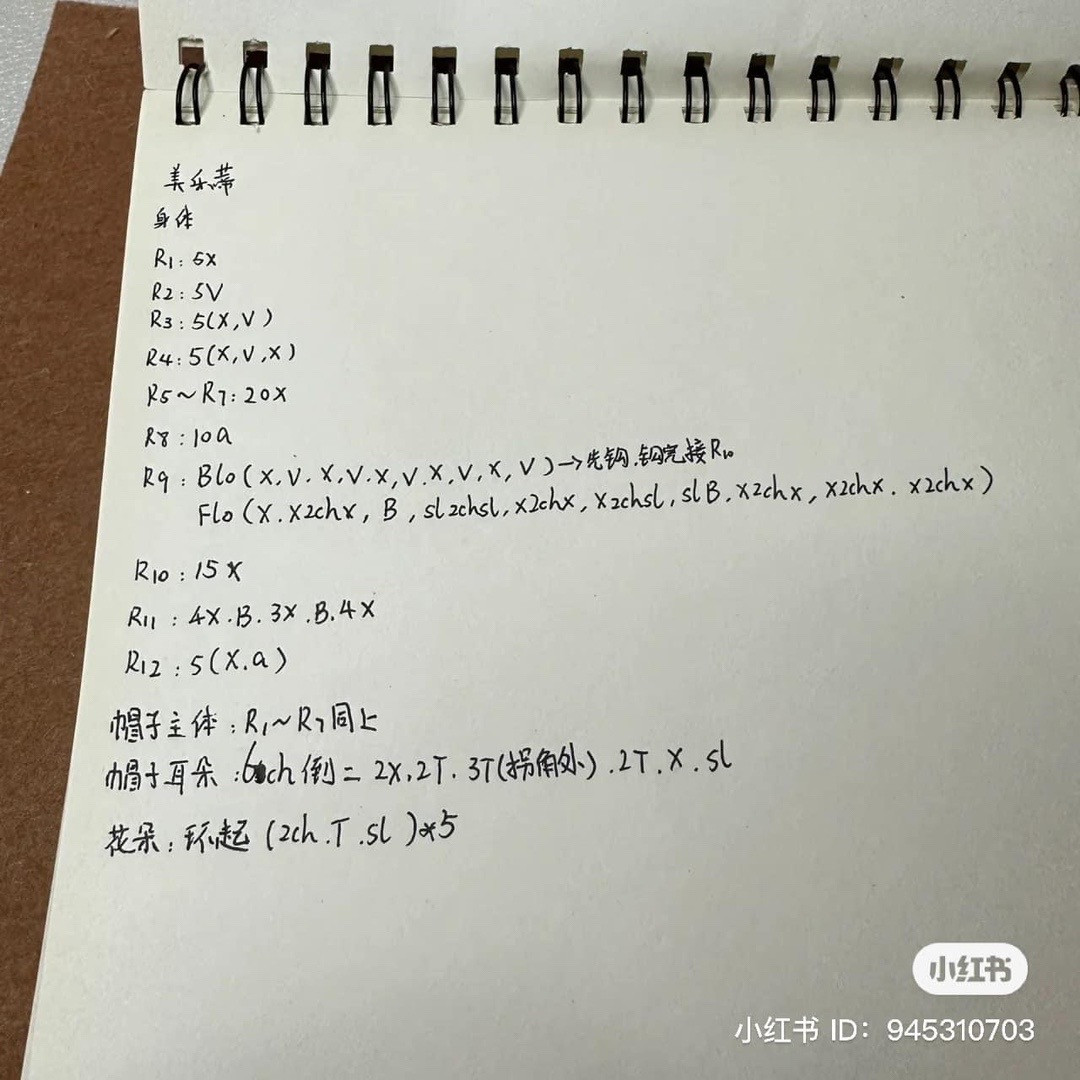 美乐蒂
身体
R1：5X
R2：5V
R3：5(X,V)
R4：5(X,V,X)
R5～R7：20X
R8：10a
R9：Blo(X,V.X,V.X,V.X,V,X,V)→先钩.钩完接R10
Flo(X.X2chx, B, sl2chsl, x2chx, X2chsl, slB, X2chx, X2chx. x2chx)
R10：15X
R11：4X.B.3X.B.4X
R12：5(X.a)
帽子主体：R1～R7同上
帽子耳朵：6ch倒二 2X.2T.3T(拐角处).2T.X.sl
花朵：环起 (2ch.T.sl)*5
小红书
小红书 ID：945310703